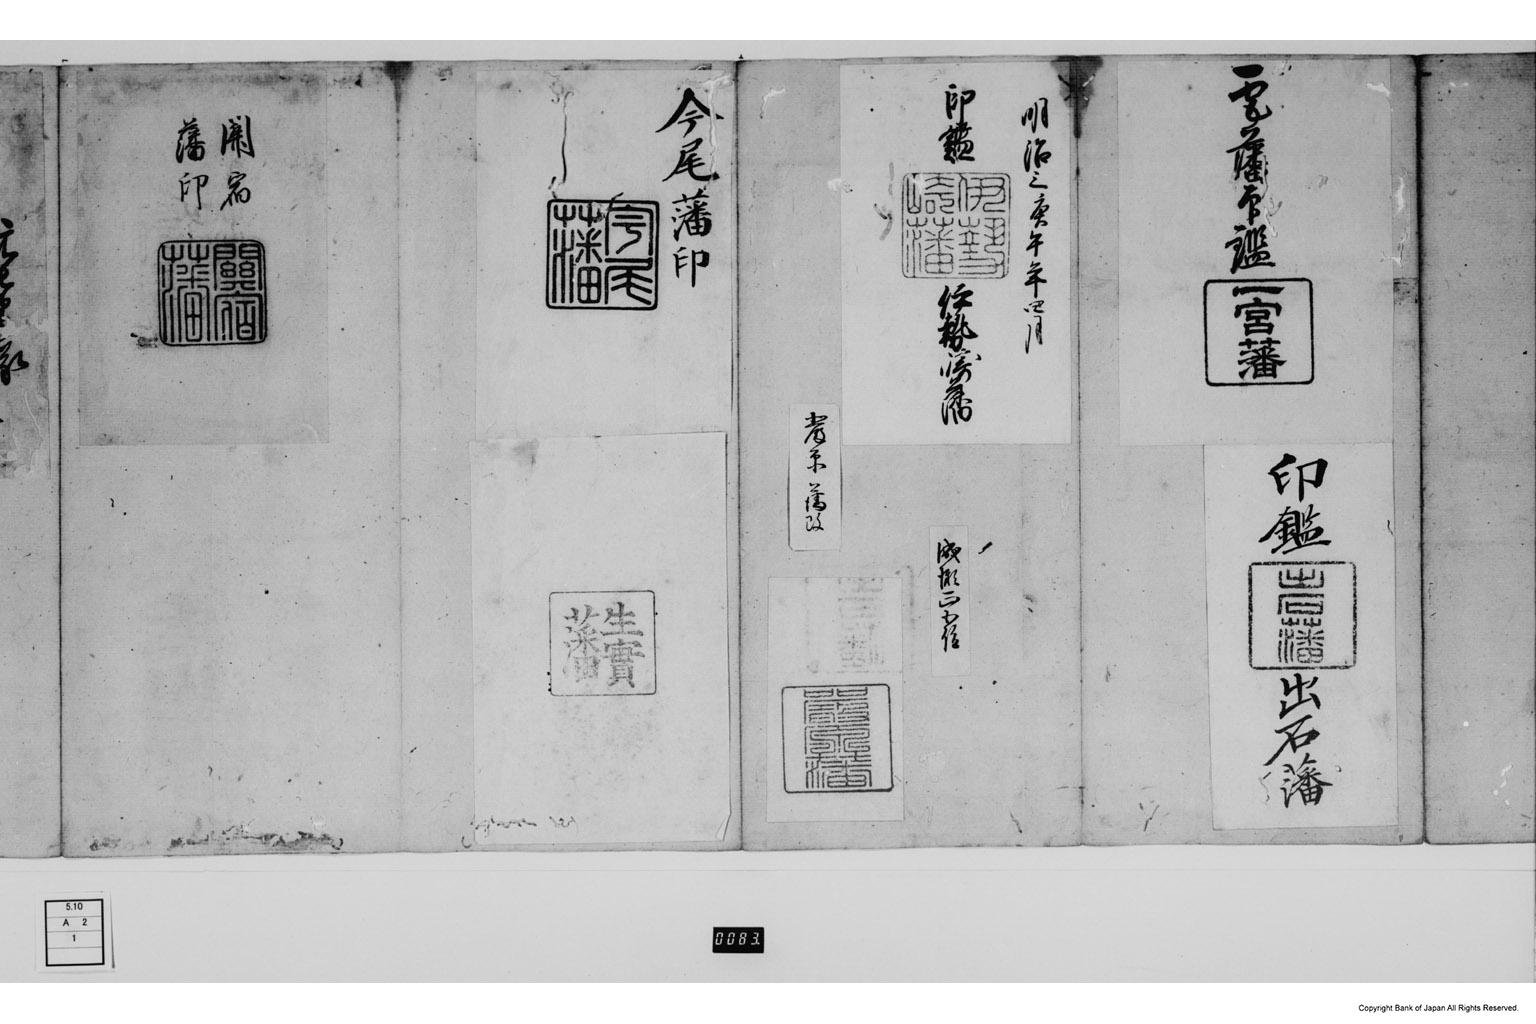 一宮藩印鑑
一宮藩
印鑑
出石藩
出石藩
明治三庚午年四月
印鑑
伊勢
崎藩
伊勢崎藩
藩
今尾藩印
今尾
藩
生實
藩
関宿
藩印
關宿
藩
5.10
A 2
1
0083
Copyright Bank of Japan All Rights Reserved.